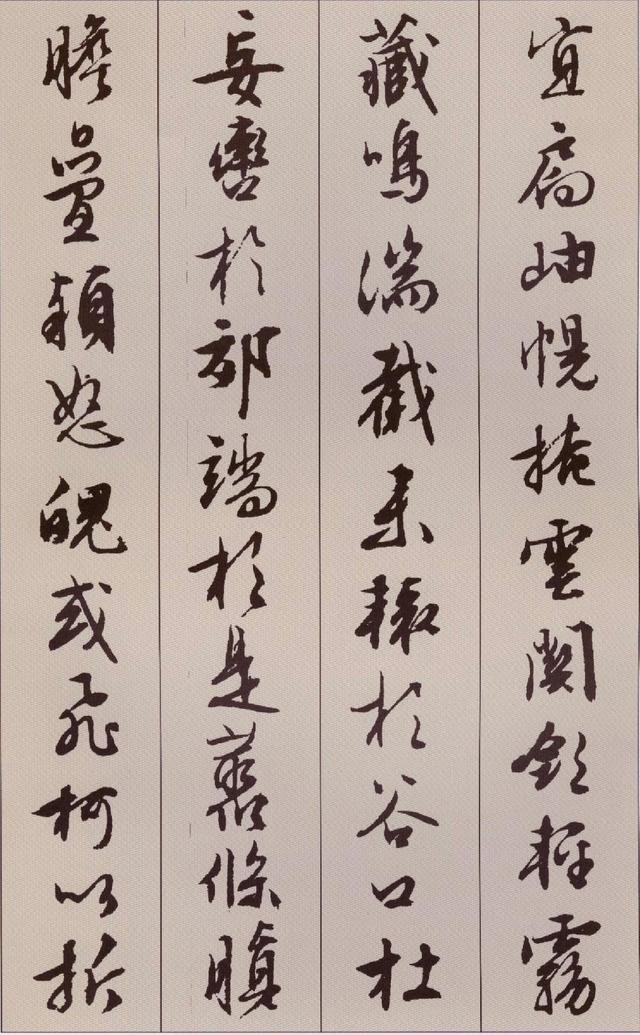 宜扃岫幌掩雲關斂輕霧
藏鳴湍截來轅於谷口杜
妄轡於郊端於是叢條瞋
膽疊穎怒魄或飛柯以折